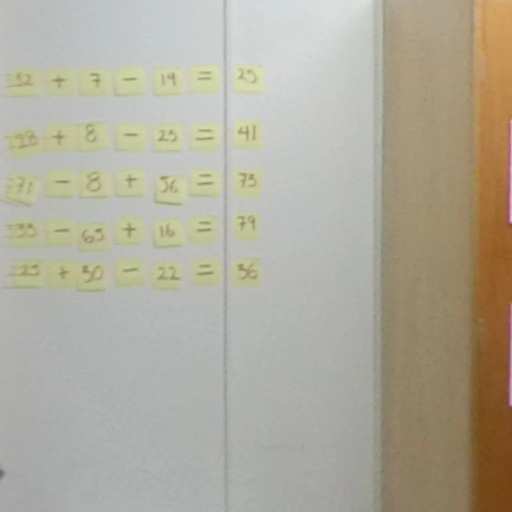 32 + 7 - 14 = 25
+ 8 - 25 = 41
- 8 + 56 = 75
- 65 + 16 = 79
+ 30 - 22 = 36